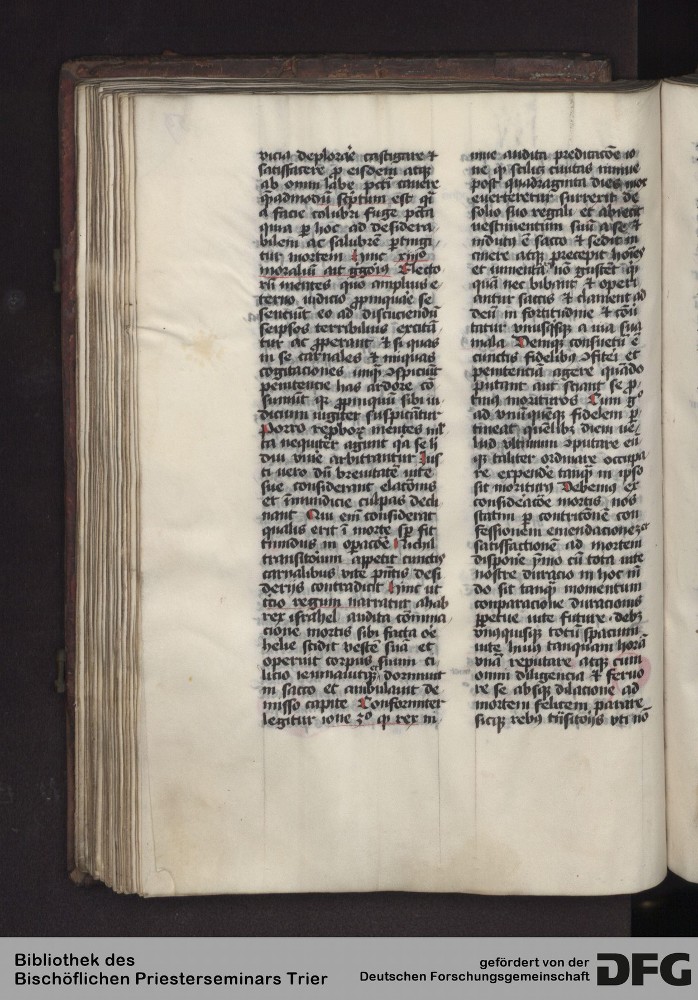 vicia deplorare castigare ⁊
satisfacere ꝓ eisdem atqꝫ
ab omni labe pcti cauere
qͥadmodū scptum est qͣ
a facie colubri fuge pcta
quia ꝑ hoc ad desidera
bilem ac salubrē ꝑtingi
tur mortem hinc xijͦ
moralium ait ggoꝛiꝰ Electo
rū mentes quo amplius e
terno iudicio ꝓpinquare se
senciūt eo ad discuciendū
seipsos terribilius excitā
tur ac ꝓperant ⁊ si quas
in se carnales ⁊ iniquas
cogitaciones inqꝫ ꝯspiciūt
penitencie has ardore cō
sumūt qꝛ ꝓpinquū sibi iu
dicium iugiter suspicātur
Porro reproboꝝ mentes ml
ta nequiter agunt qa se h
diu viue arbitrantur Jus
ti vero dū breuitatē vite
sue considerant elacōnis
et īmundicie culpas decli
nant Qui em considerat
qualis erit ī morte sꝑ fit
timidus in opacōe Nichil
transitorium appetit cunctis
carnalibus vite pntis desi
derijs contradicit hinc vt
tcio regum narratur ahab
rex israhel audita comina
cione mortis sibi facta oē
helie scidit vestē suā et
operuit corpus suum ci
licio ieiunauitqꝫ dormiuit
in sacco et ambulauit de
misso capite Conformiter
legitur ione 3ͦ qꝫ rex ni
niue audita predicacōe io
ne qꝫ scilis ciuitas niniue
post quadraginta dies mox
euerteretur surrexit de
solio suo regali et abiecit
vestimentum suū a se ⁊
indutꝰ ē sacco ⁊ sedit in
cinere atqꝫ precepit hoīes
et iumenta nō gustēt qͥ
quā nec bibant ⁊ operi
antur saccis ⁊ clament ad
deū in fortitudine ⁊ cōū
tatur vnusqͥsqꝫ a via sua
mala Demqꝫ consuetū ē
cunctis fidelibꝰ ꝯfiteri et
penitenciā agere quādo
putant aut sciant se ꝓ
timꝰ morituros Cum gͦ
ad vnūquēqꝫ fidelem ꝑ
tineat quēlibꝫ diem ue
lud vltimum ꝯputare eū
qꝫ taliter ordinare occupa
re expendē tanqꝫ in ipso
sit moriturꝰ Debemus ex
consideracōe mortis nos
statim ꝑ contricōnē con
fessionem emendacionem
satisfactionē ad mortem
dispone ymmo cū tota uite
nostre duracio in hoc mū
do sit tanqꝫ momentum
comparacione duracionis
perpetue uite future · debꝫ
vnusquisqꝫ totū spacium
uite huiꝰ tanquam horā
vnā reputare atqꝫ cum
omni diligencia ⁊ feruo
re se absqꝫ dilacione ad
mortem felicem parare
sicqꝫ rebꝰ tnsitorijs vti nō
Bibliothek des
Bischöflichen Priesterseminars Trier
gefördert von der
Deutschen Forschungsgemeinschaft
DFG